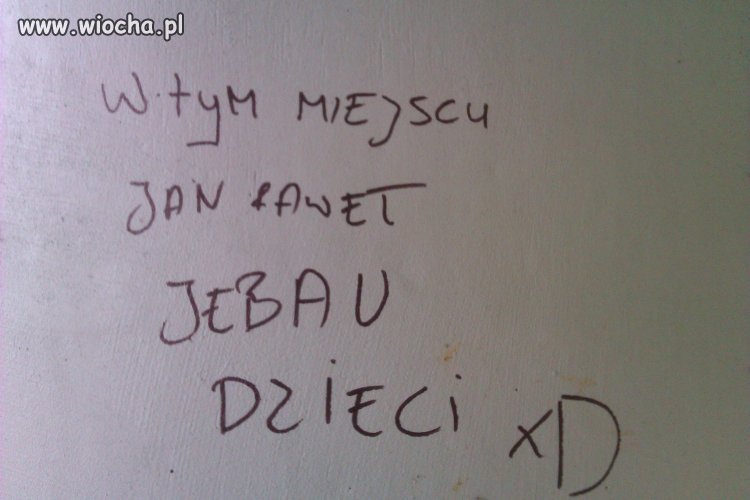 www.wiocha.pl
W tym MIEJSCU
JAN PAWEŁ
JEBAU
DZIECI XD